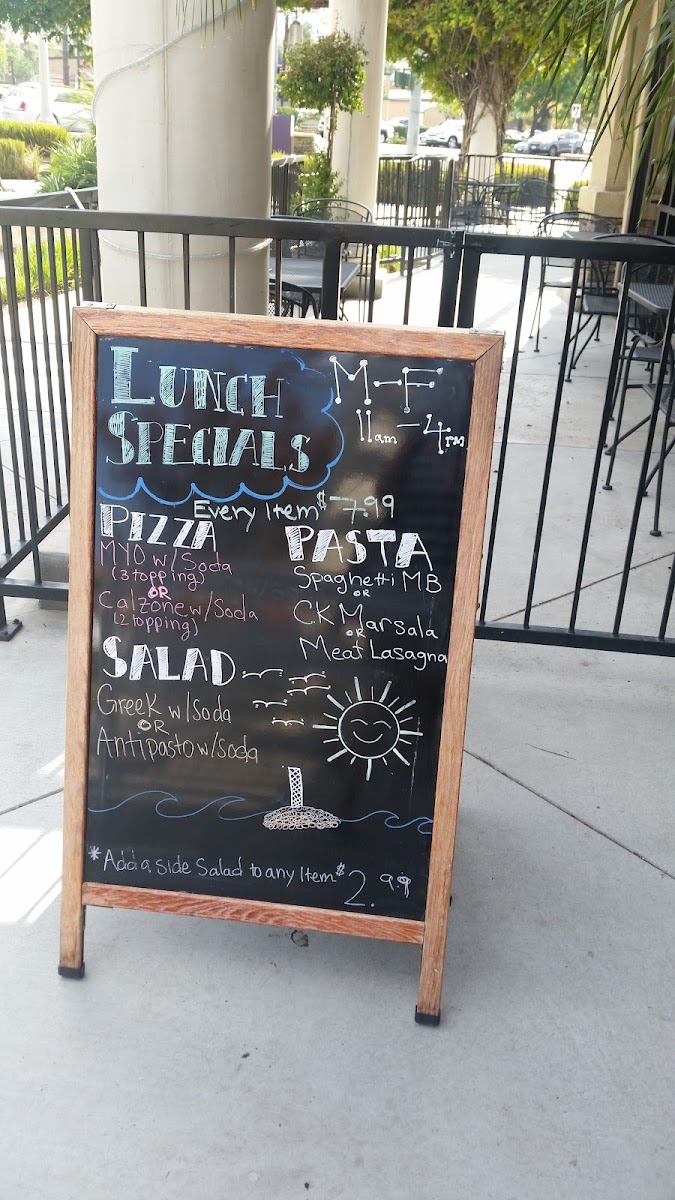 LUNCH
SPECIALS
M-F
11am-4PM
EVERY ITEM $7.99
PIZZA
MYO w/Soda
(3 topping)
OR
Calzone w/Soda
(2 topping)
SALAD
Greek w/Soda
OR
Antipasto w/Soda
PASTA
Spaghetti MB
OR
CK Marsala
OR
Meat Lasagna
*Add a side Salad to any Item $2.99